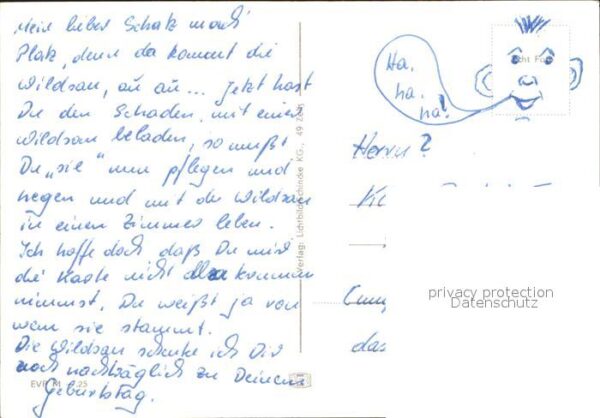 Mein lieber Schatz mach'
Platz, denn da kommt die
Wildsau, au au... Jetzt hast
Du den Schaden, mit einer
Wildsau beladen, so mußt
Du „sie" nun pflegen und
hegen und mit der Wildsau
in einem Zimmer leben.
Ich hoffe doch daß Du mir
die Karte nicht krumm
nimmst. Du weißt ja von
wem sie stammt.
Die Wildsau schenke ich Dir
noch nachträglich zu Deinem
Geburtstag.
EVP M -.25
Verlag: Lichtbild KG., 49 Zeitz
Ha,
ha,
ha!
Echt Foto
Herrn?
das
privacy protection
Datenschutz